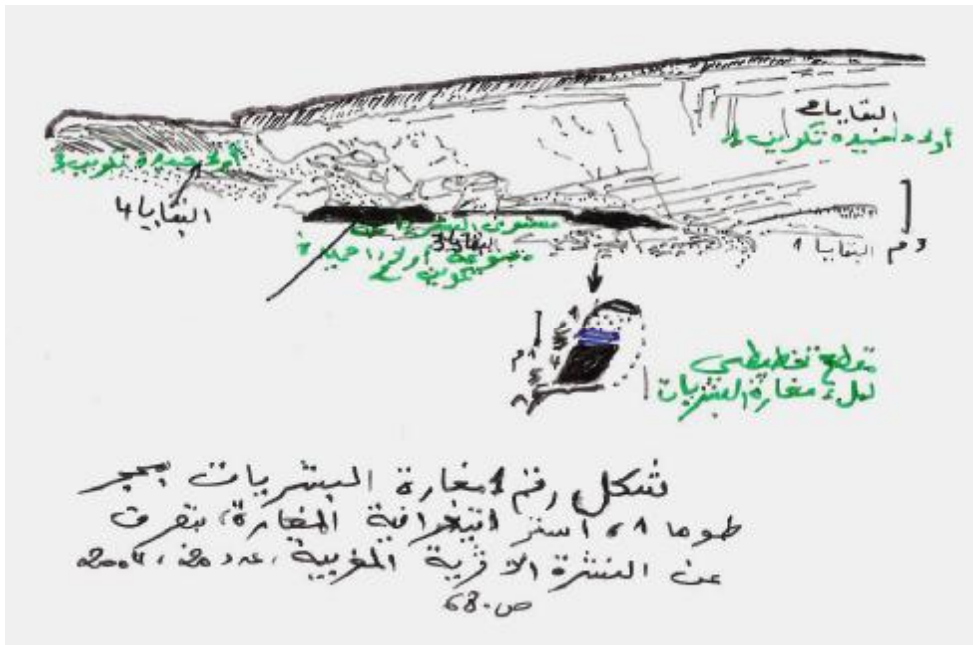 البقايا 2
أولاد حميدة تكوين 1
أولاد حميدة تكوين 3
البقايا 4
مستوى البشريات
البقايا 3
مجموعة أولاد حميدة
تكوين
3 م
البقايا 1
1 م
مقطع تخطيطي
لملء مغارة البشريات
شكل رقم 1 مغارة البشريات بحجر
طوما 1، استراتيغرافية المغارة، بتصرف
عن النشرة الأثرية المغربية، عدد 20، 2004
ص. 68